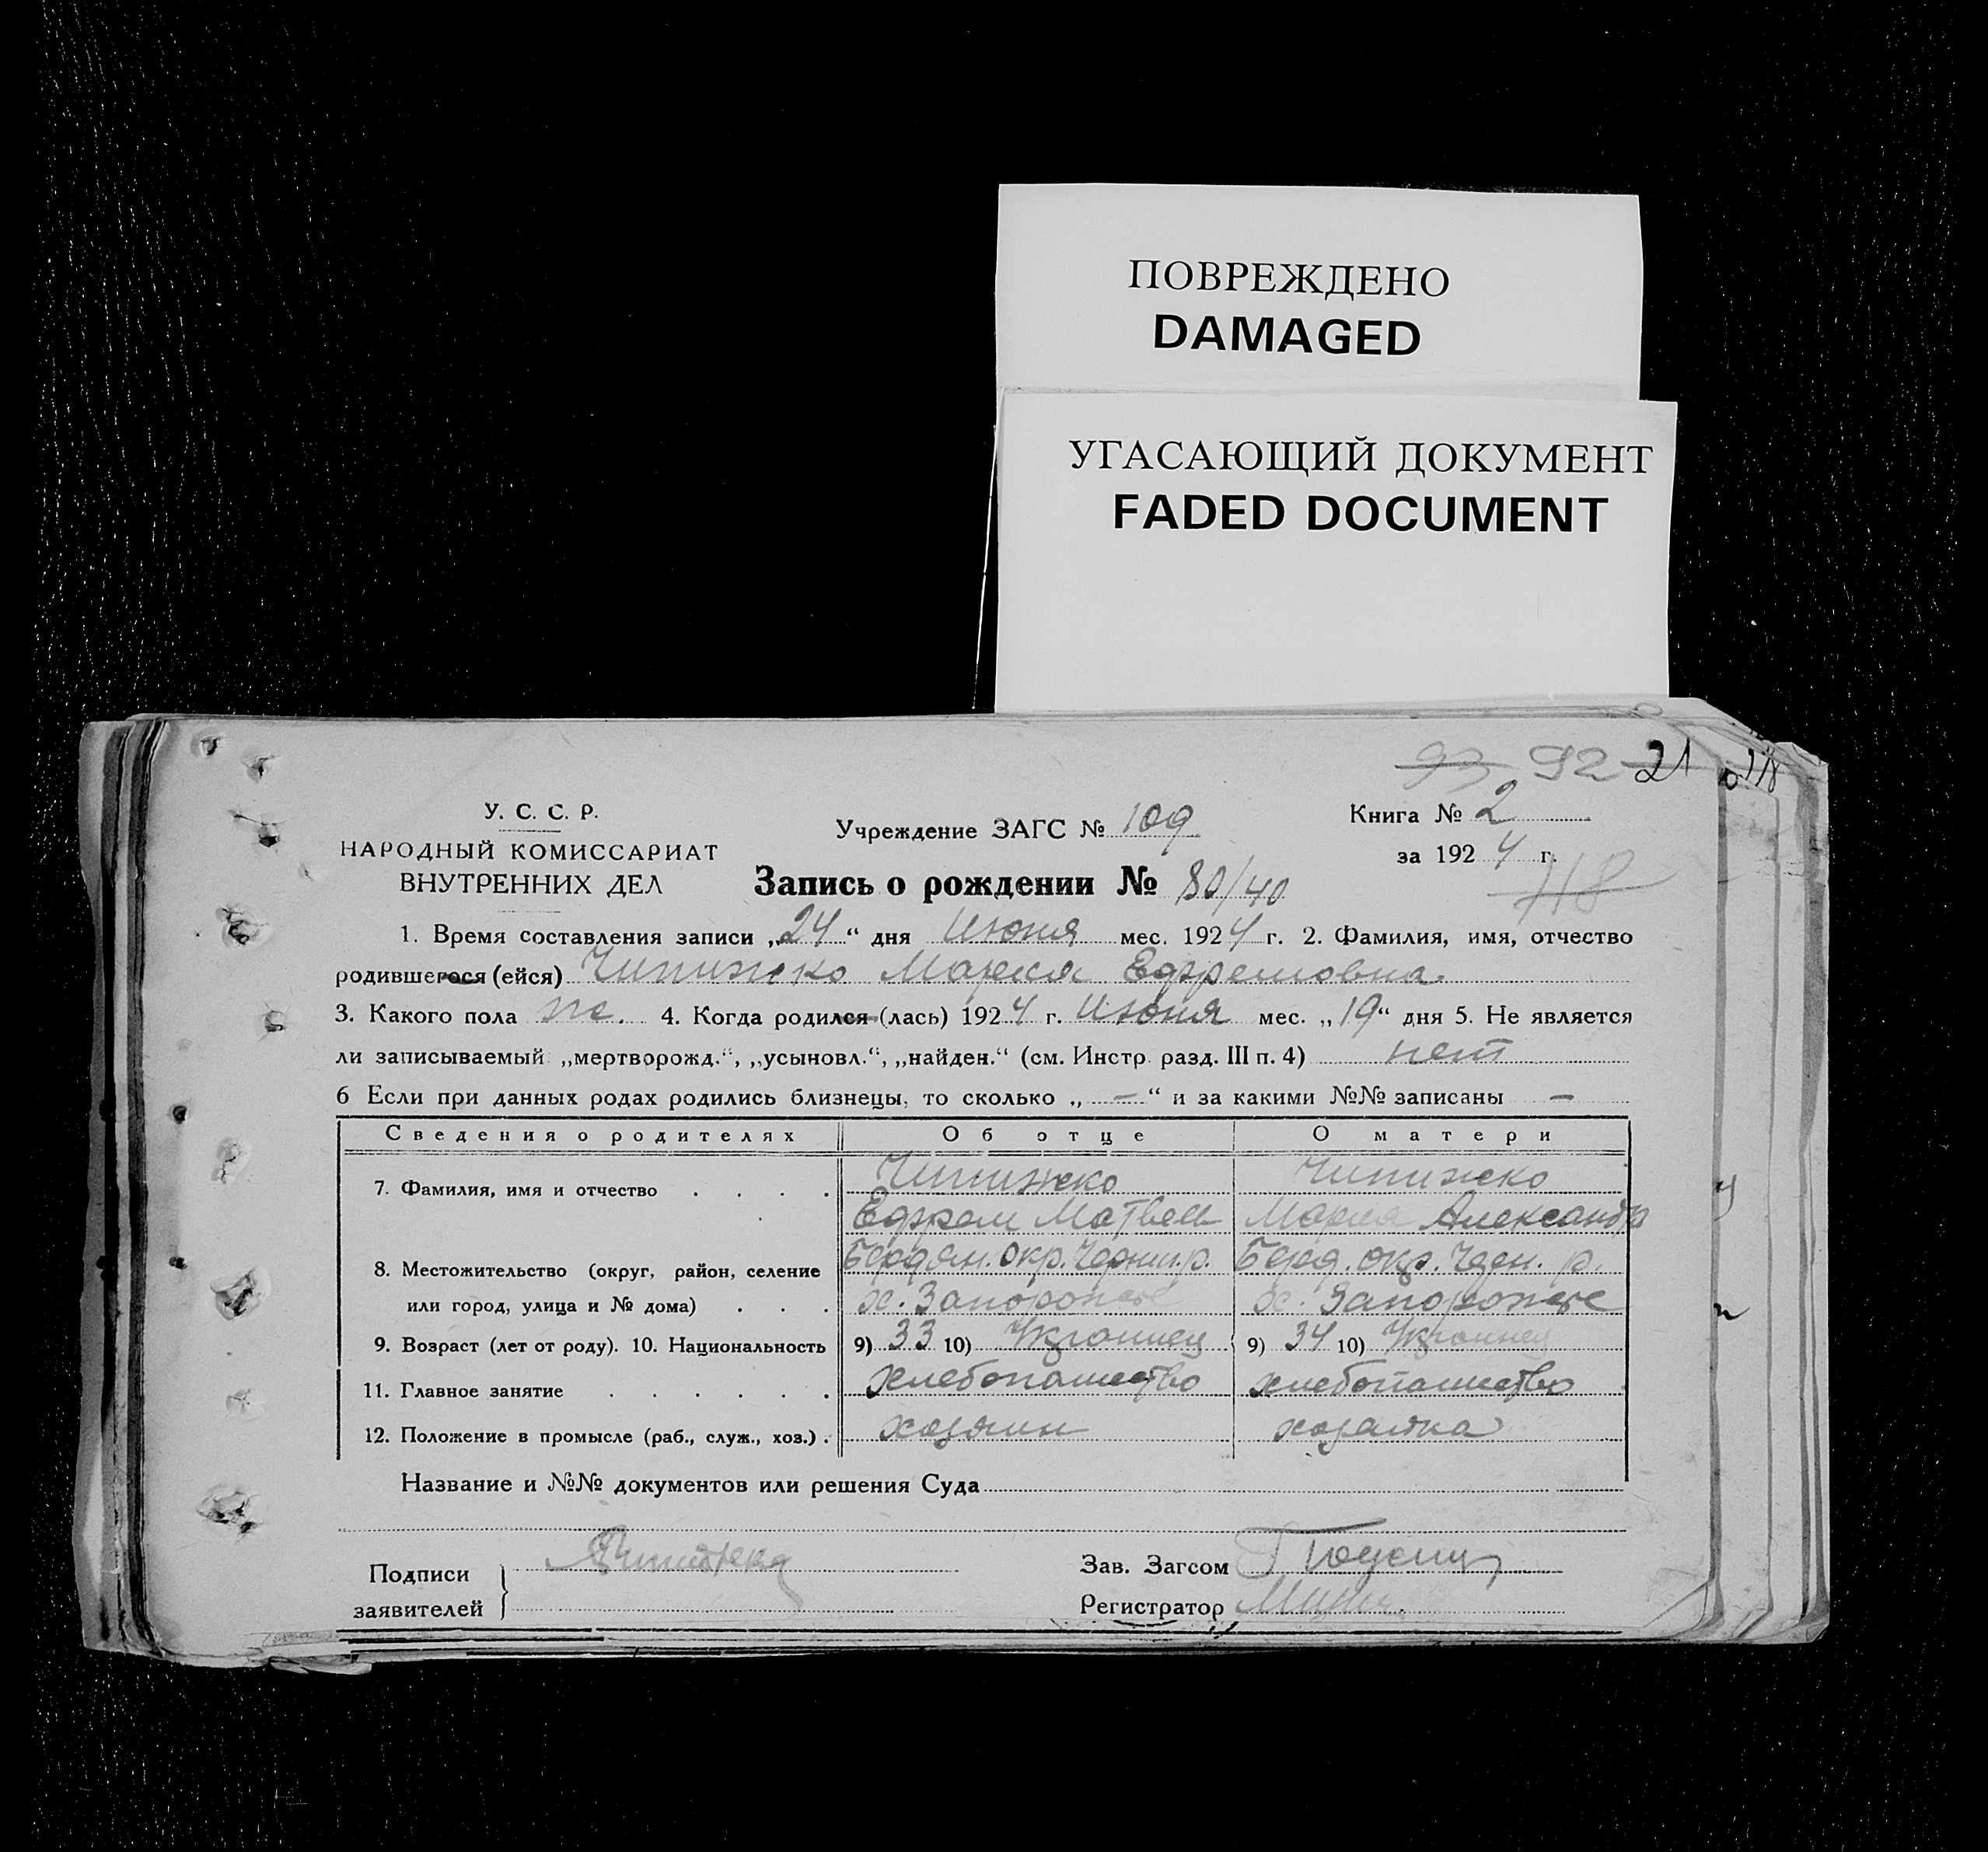 ПОВРЕЖДЕНО
DAMAGED
УГАСАЮЩИЙ ДОКУМЕНТ
FADED DOCUMENT
93 92 21
У. С. С. Р.
НАРОДНЫЙ КОМИССАРИАТ
ВНУТРЕННИХ ДЕЛ
Учреждение ЗАГС № 109
Книга № 2
за 1924 г.
118
Запись о рождении № 80/40
1. Время составления записи „24“ дня Июня мес. 1924 г. 2. Фамилия, имя, отчество
родившегося (ейся) Чипижко Мария Ефремовна
3. Какого пола ж. 4. Когда родился (лась) 1924 г. Июня мес. „19“ дня 5. Не является
ли записываемый „мертворожд.“, „усыновл.“, „найден.“ (см. Инстр. разд. III п. 4) нет
6 Если при данных родах родились близнецы, то сколько „—“ и за какими №№ записаны —
Сведения о родителях Об отце О матери
7. Фамилия, имя и отчество . . . . Чипижко Чипижко
Ефрем Матвее Мария Александр
8. Местожительство (округ, район, селение Бердян. окр. Черниг. р. Берд. окр. Черн. р.
или город, улица и № дома) . . . х. Запорожье х. Запорожье
9. Возраст (лет от роду). 10. Национальность 9) 33 10) Украинец 9) 34 10) Украинец
11. Главное занятие . . . . . . хлебопашество хлебопашество
12. Положение в промысле (раб., служ., хоз.) . хозяин хозяйка
Название и №№ документов или решения Суда
Подписи
заявителей
Зав. Загсом
Регистратор